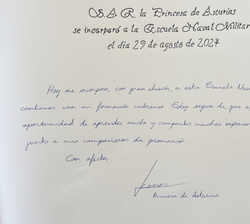 S.A.R. la Princesa de Asturias
se incorporó a la Escuela Naval Militar
el día 29 de agosto de 2024
Hoy me incorporo, con gran ilusión, a esta Escuela Nav
continuar con mi formación castrense. Estoy segura de que s
oportunidad de aprender mucho y compartir muchas experien
junto a mis compañeros de promoción.
Con afecto,
Leonor
Princesa de Asturias